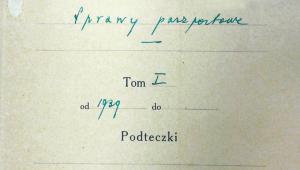 Sprawy paszportowe
Tom I
od 1939 do
Podteczki